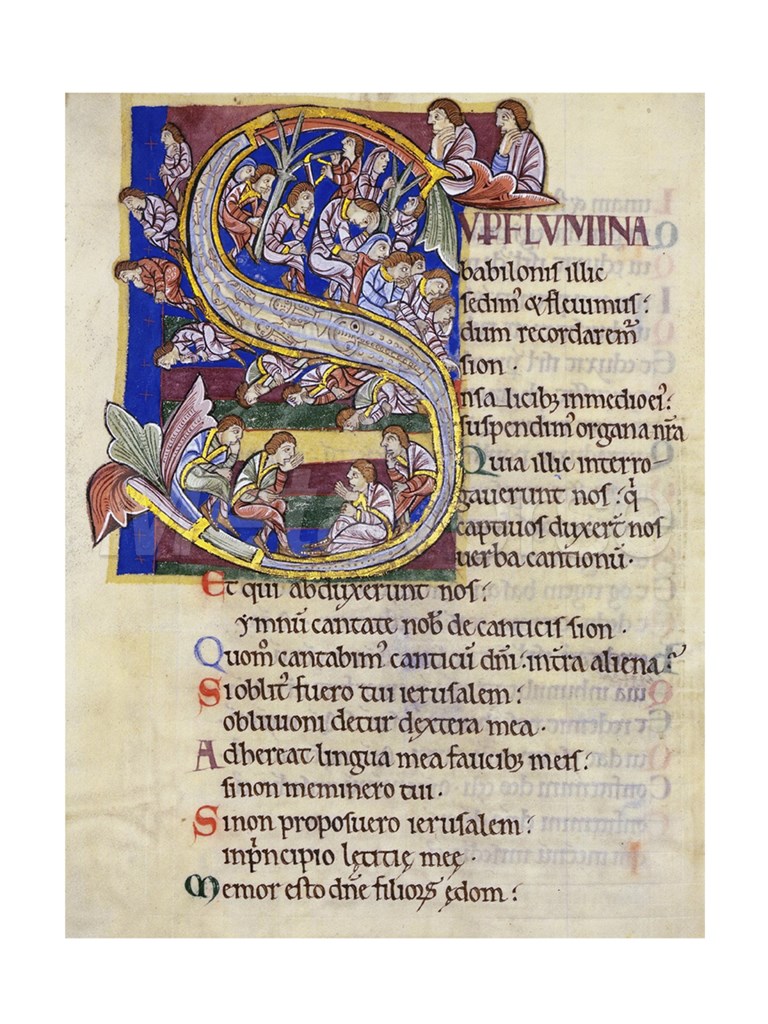 SUP FLUMINA
babilonis illic
sedim᷒ & fleuimus:
dum recordarem᷒
sion ·
In salicib; in medio ei᷒:
suspendim᷒ organa nr̄a
Quia illic interro-
gauerunt nos: q̇
captiuos duxer̄t nos
uerba cantionū ·
Et qui abduxerunt nos:
ymnū cantate nob̄ de canticis sion ·
Quom̄ cantabim᷒ canticū dn̄i · in tr̄a aliena?
Si oblit᷒ fuero tui ierusalem:
obliuioni detur dextera mea ·
Adhereat lingua mea faucib; meis:
si non meminero tui ·
Si non proposuero ierusalem:
in pͥncipio lętitię meę ·
Memor esto dn̄e filiorꝝ ędom: